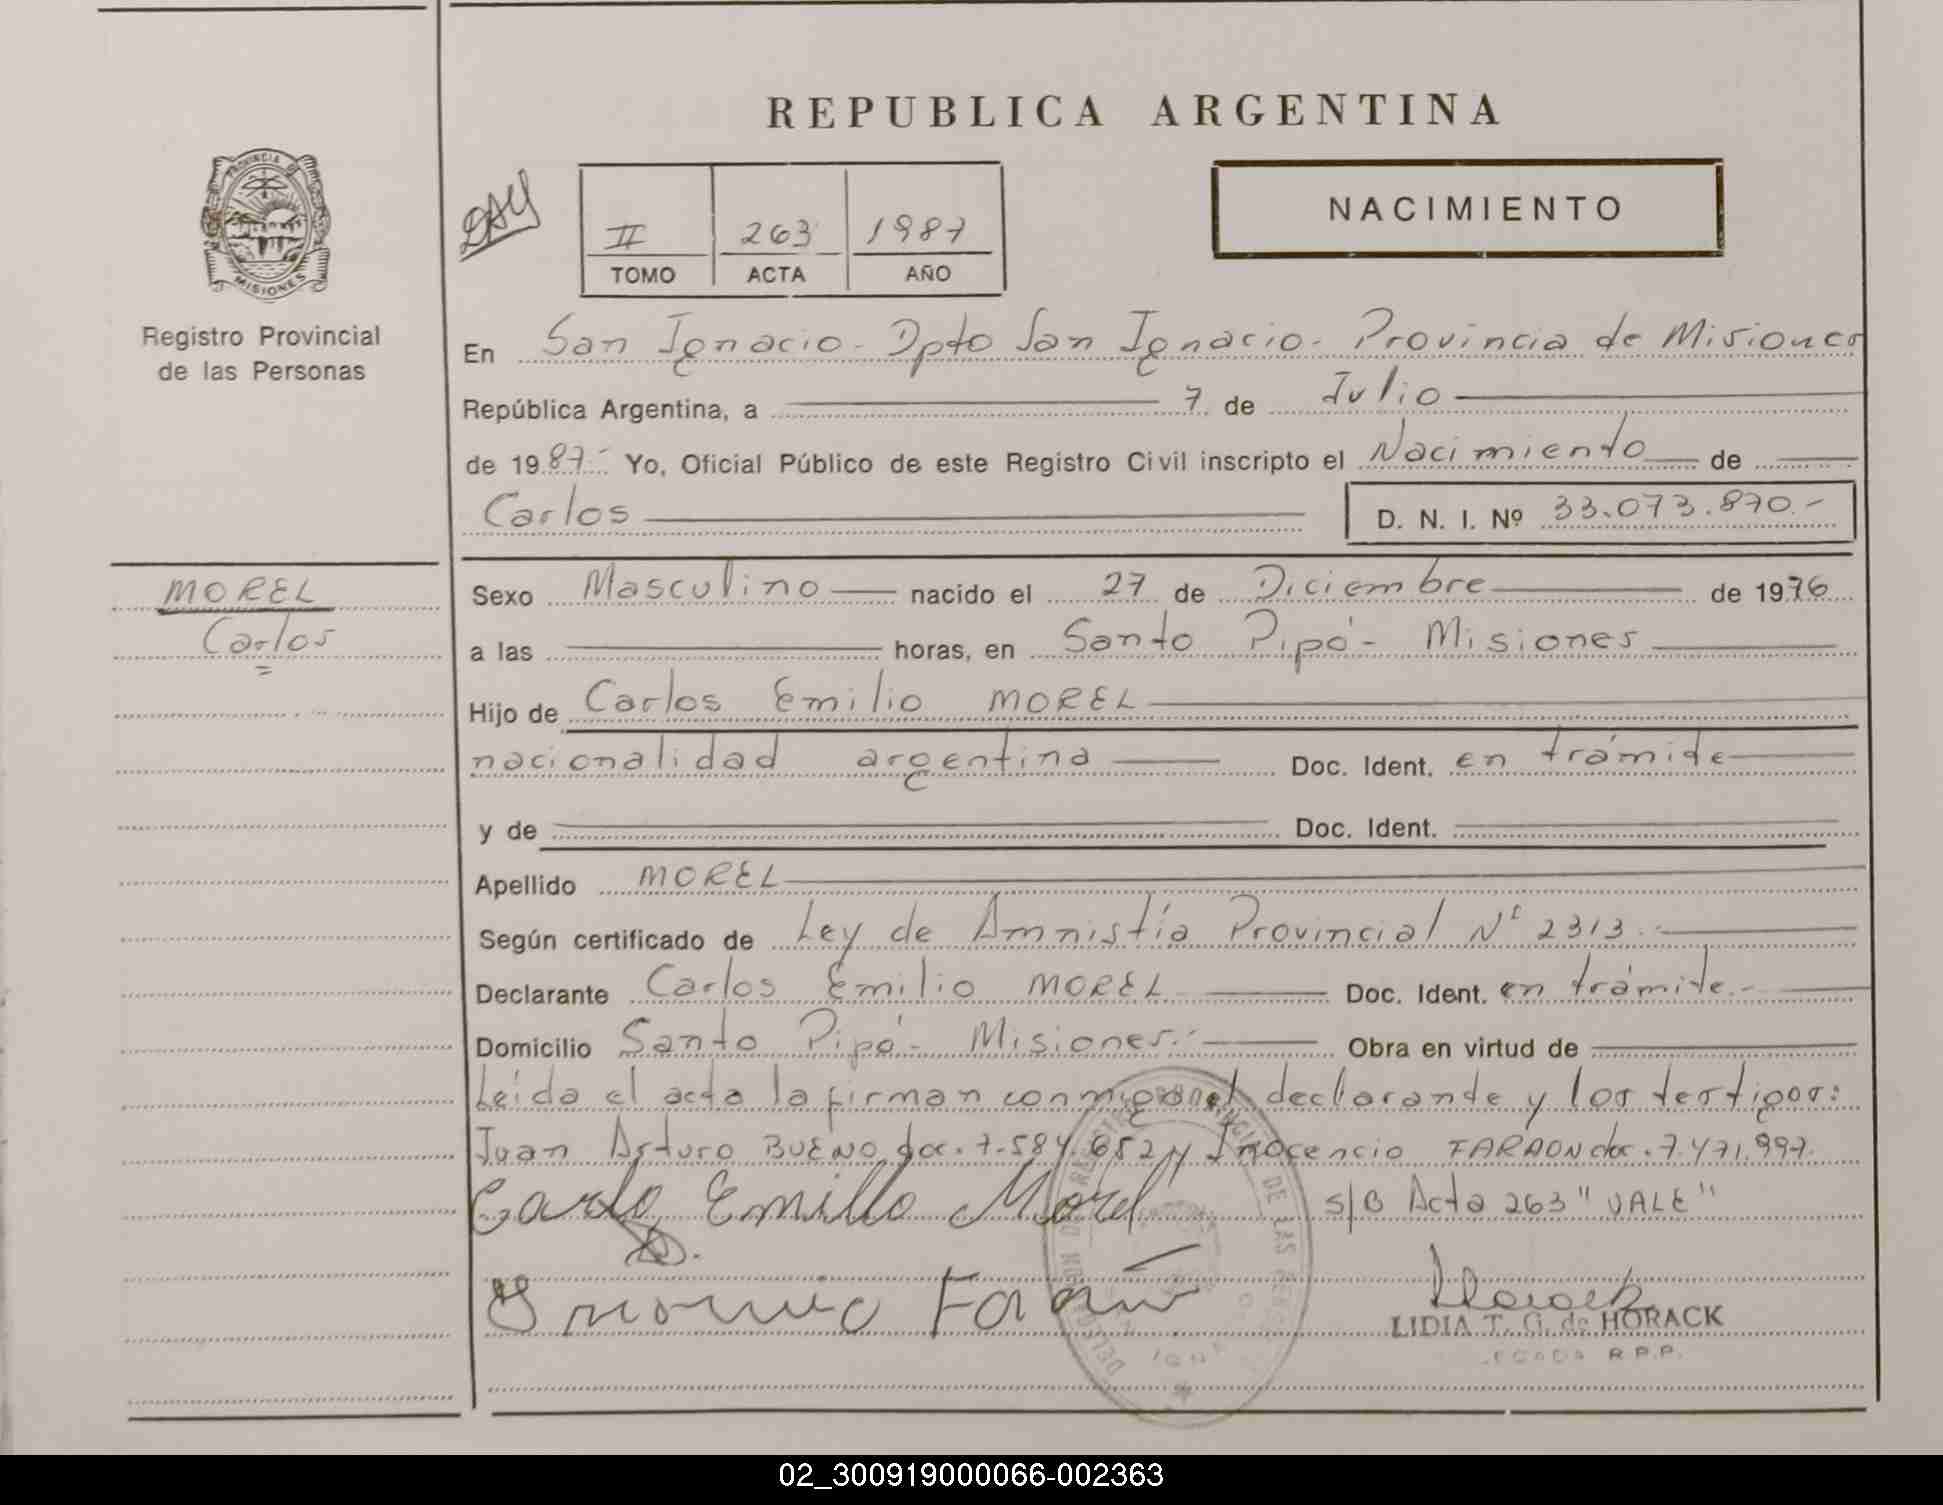 REPUBLICA ARGENTINA
PROVINCIA DE
MISIONES
Registro Provincial
de las Personas
II 263 1987
TOMO ACTA AÑO
NACIMIENTO
En San Ignacio - Dpto San Ignacio - Provincia de Misiones
República Argentina, a 7 de Julio
de 1987.- Yo, Oficial Público de este Registro Civil inscripto el Nacimiento de
Carlos D. N. I. Nº 33.073.870.-
MOREL
Carlos
Sexo Masculino nacido el 27 de Diciembre de 1976
a las horas, en Santo Pipó - Misiones
Hijo de Carlos Emilio MOREL
nacionalidad argentina Doc. Ident. en trámite
y de Doc. Ident.
Apellido MOREL
Según certificado de Ley de Amnistía Provincial Nº 2313.
Declarante Carlos Emilio MOREL Doc. Ident. en trámite.-
Domicilio Santo Pipó - Misiones.- Obra en virtud de
Leída el acta la firman conmigo el declarante y los testigos:
Juan Arturo BUENO doc. 7.584.652 y Inocencio FARAON doc. 7.471.997.
Carlo Emilio Morel S/B Acta 263 "VALE"
LIDIA T. G. de HORACK
R.P.P.
02_300919000066-002363